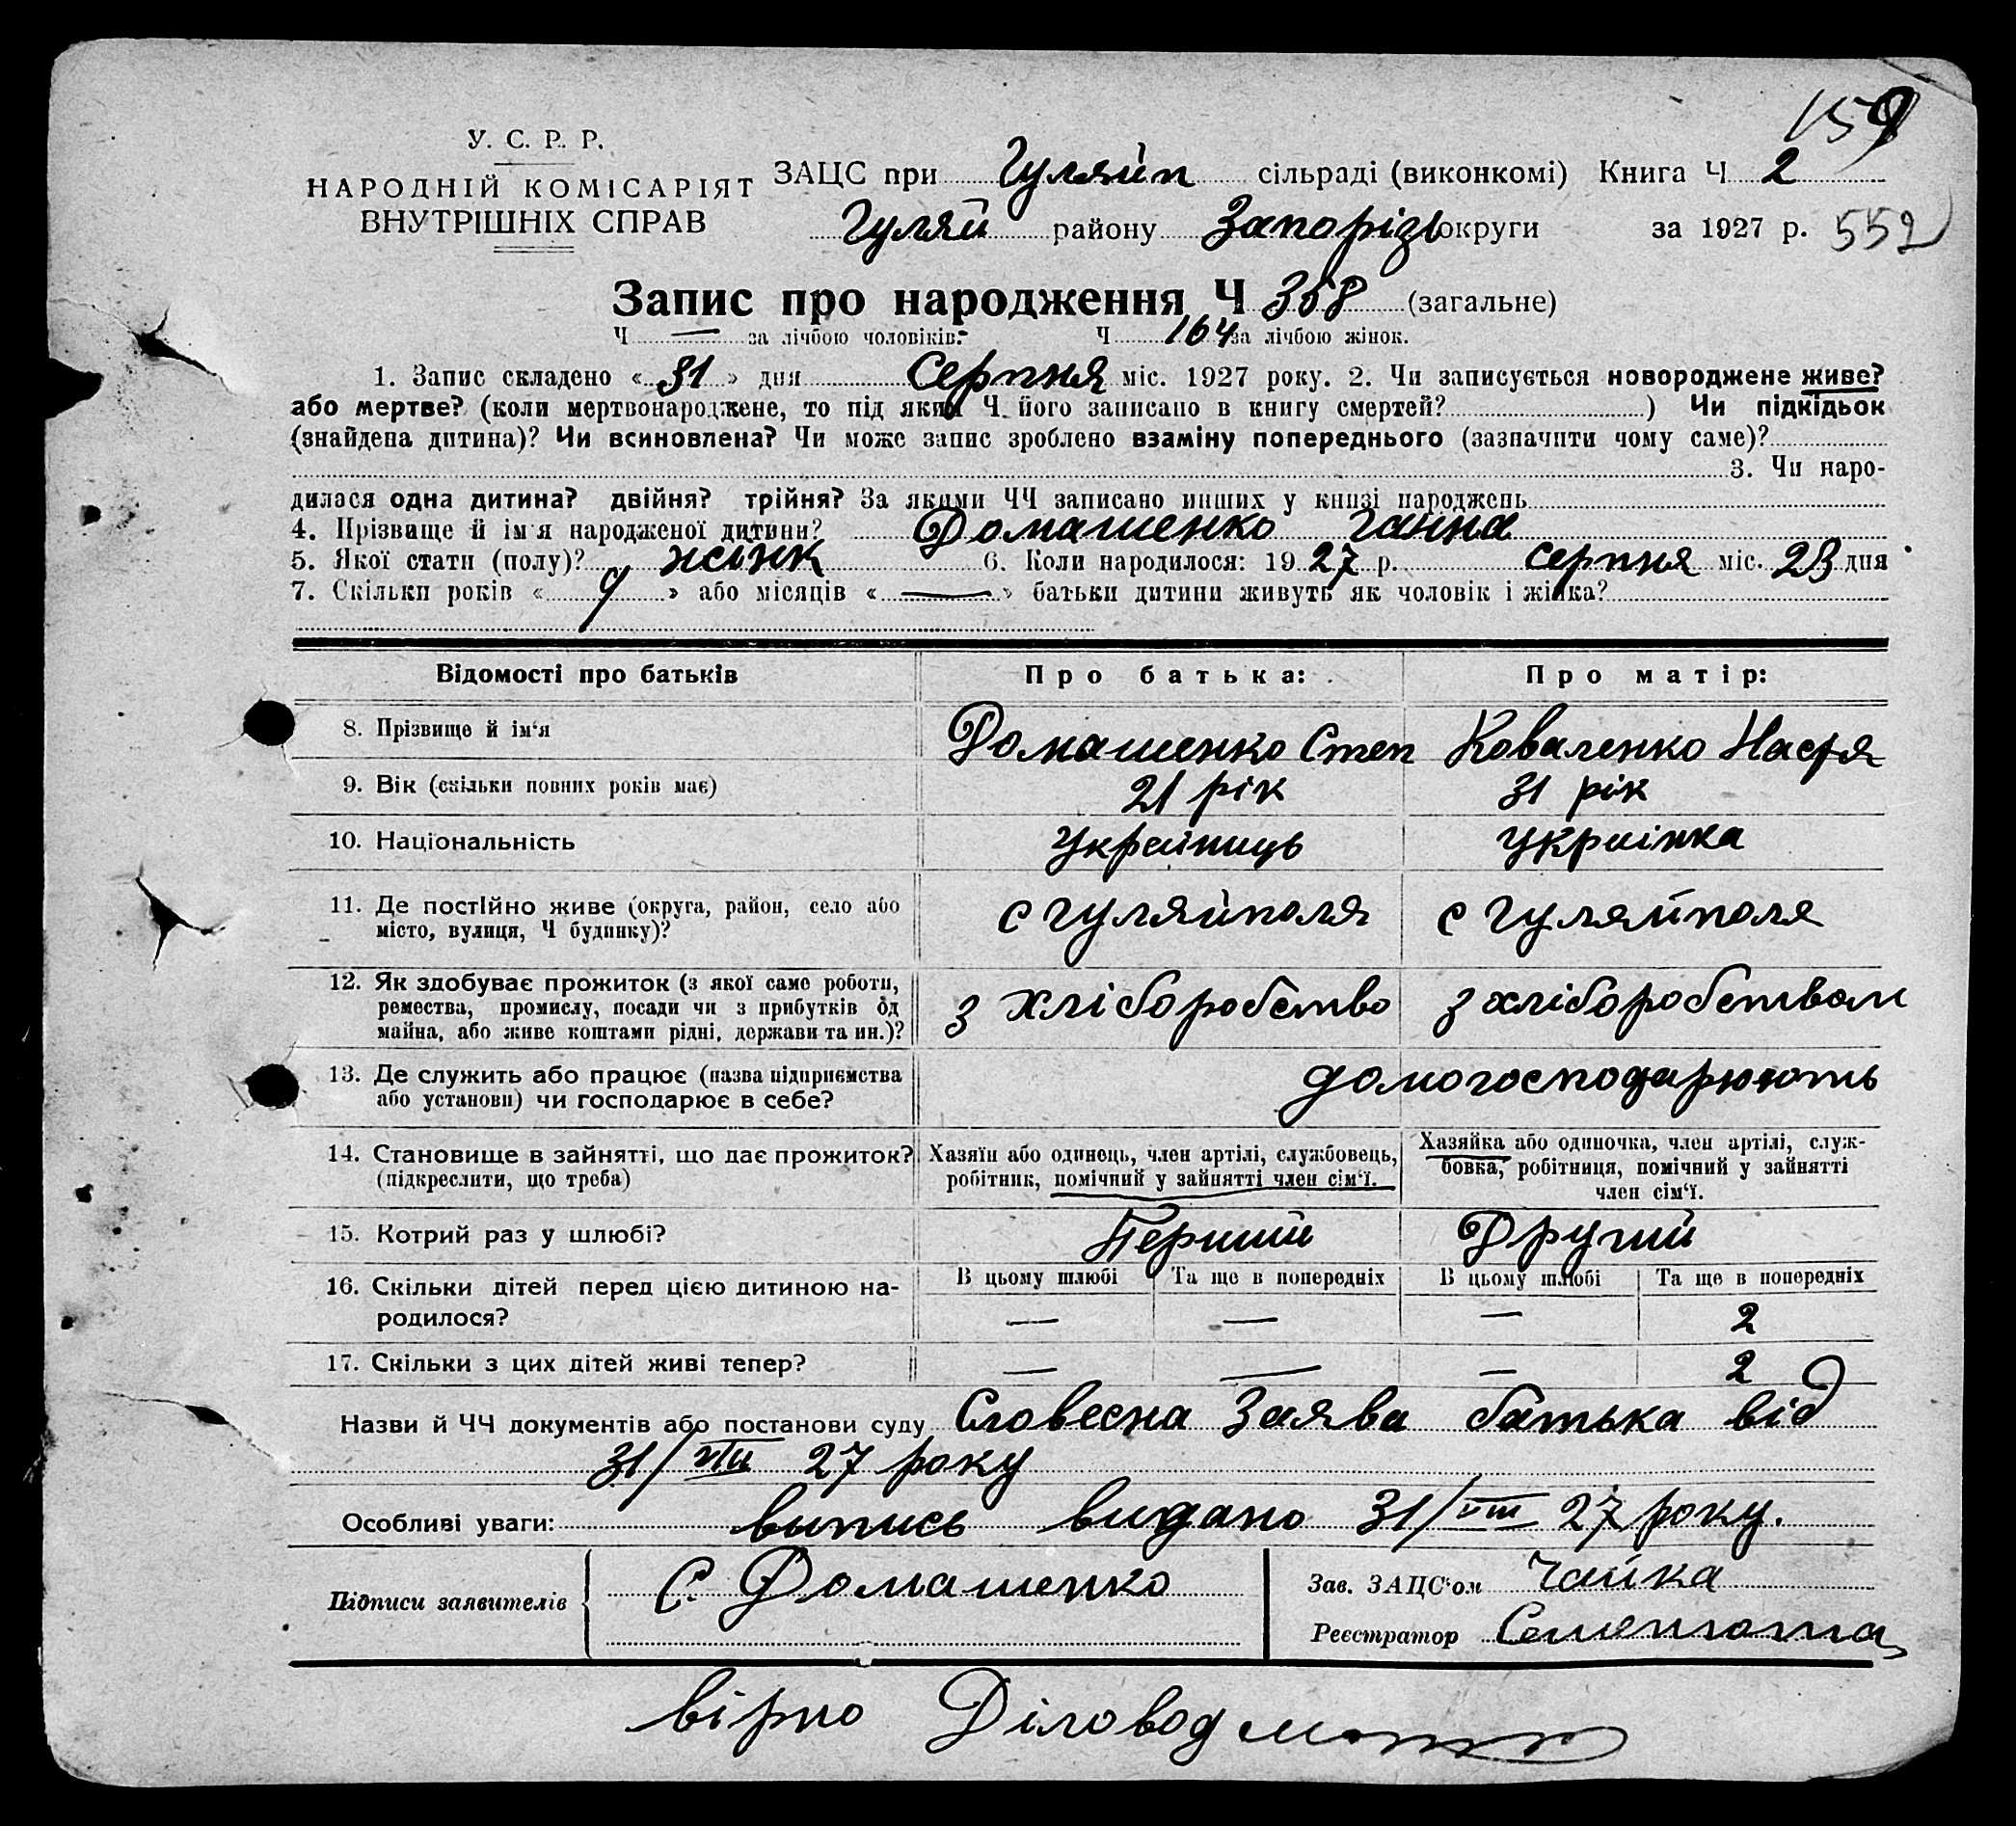 159
У. С. Р. Р.
НАРОДНІЙ КОМІСАРІЯТ
ВНУТРІШНІХ СПРАВ
ЗАЦС при Гуляйп сільраді (виконкомі) Книга Ч 2
Гуляй району Запорізь округи за 1927 р. 552
Запис про народження Ч 358 (загальне)
Ч — за лічбою чоловіків. Ч 164 за лічбою жінок.
1. Запис складено « 31 » дня Серпня міс. 1927 року. 2. Чи записується новороджене живе?
або мертве? (коли мертвонароджене, то під яким Ч його записано в книгу смертей? ) Чи підкідьок
(знайдена дитина)? Чи всиновлена? Чи може запис зроблено взаміну попереднього (зазначити чому саме)?
3. Чи наро-
дилася одна дитина? двійня? трійня? За якими ЧЧ записано инших у книзі народжень
4. Прізвище й ім'я народженої дитини? Домашенко Ганна
5. Якої стати (полу)? жінк 6. Коли народилося: 19 27 р. серпня міс. 23 дня
7. Скільки років « » або місяців « — » батьки дитини живуть як чоловік і жінка?
Відомості про батьків Про батька: Про матір:
8. Прізвище й ім'я Домашенко Степ Коваленко Настя
9. Вік (скільки повних років має) 21 рік 31 рік
10. Національність Українець Українка
11. Де постійно живе (округа, район, село або
місто, вулиця, Ч будинку)? с Гуляйполя с Гуляйполя
12. Як здобуває прожиток (з якої саме роботи,
ремества, промислу, посади чи з прибутків од
майна, або живе коштами рідні, держави та ин.)? з хліборобство з хліборобством
13. Де служить або працює (назва підприємства
або установи) чи господарює в себе? домогосподарюють
14. Становище в зайнятті, що дає прожиток?
(підкреслити, що треба)
Хазяїн або одинець, член артілі, службовець,
робітник, помічний у зайнятті член сім'ї.
Хазяйка або одиночка, член артілі, служ-
бовка, робітниця, помічний у зайнятті
член сім'ї.
15. Котрий раз у шлюбі? Перший Другий
16. Скільки дітей перед цією дитиною на-
родилося?
В цьому шлюбі Та ще в попередніх В цьому шлюбі Та ще в попередніх
— — — 2
17. Скільки з цих дітей живі тепер? — — — 2
Назви й ЧЧ документів або постанови суду Словесна Заява батька від
31/VIII 27 року
Особливі уваги: випись видано 31/VIII 27 року.
Підписи заявителів С. Домашенко
Зав. ЗАЦС'ом Чайка
Реєстратор Семенюта
вірно Діловод